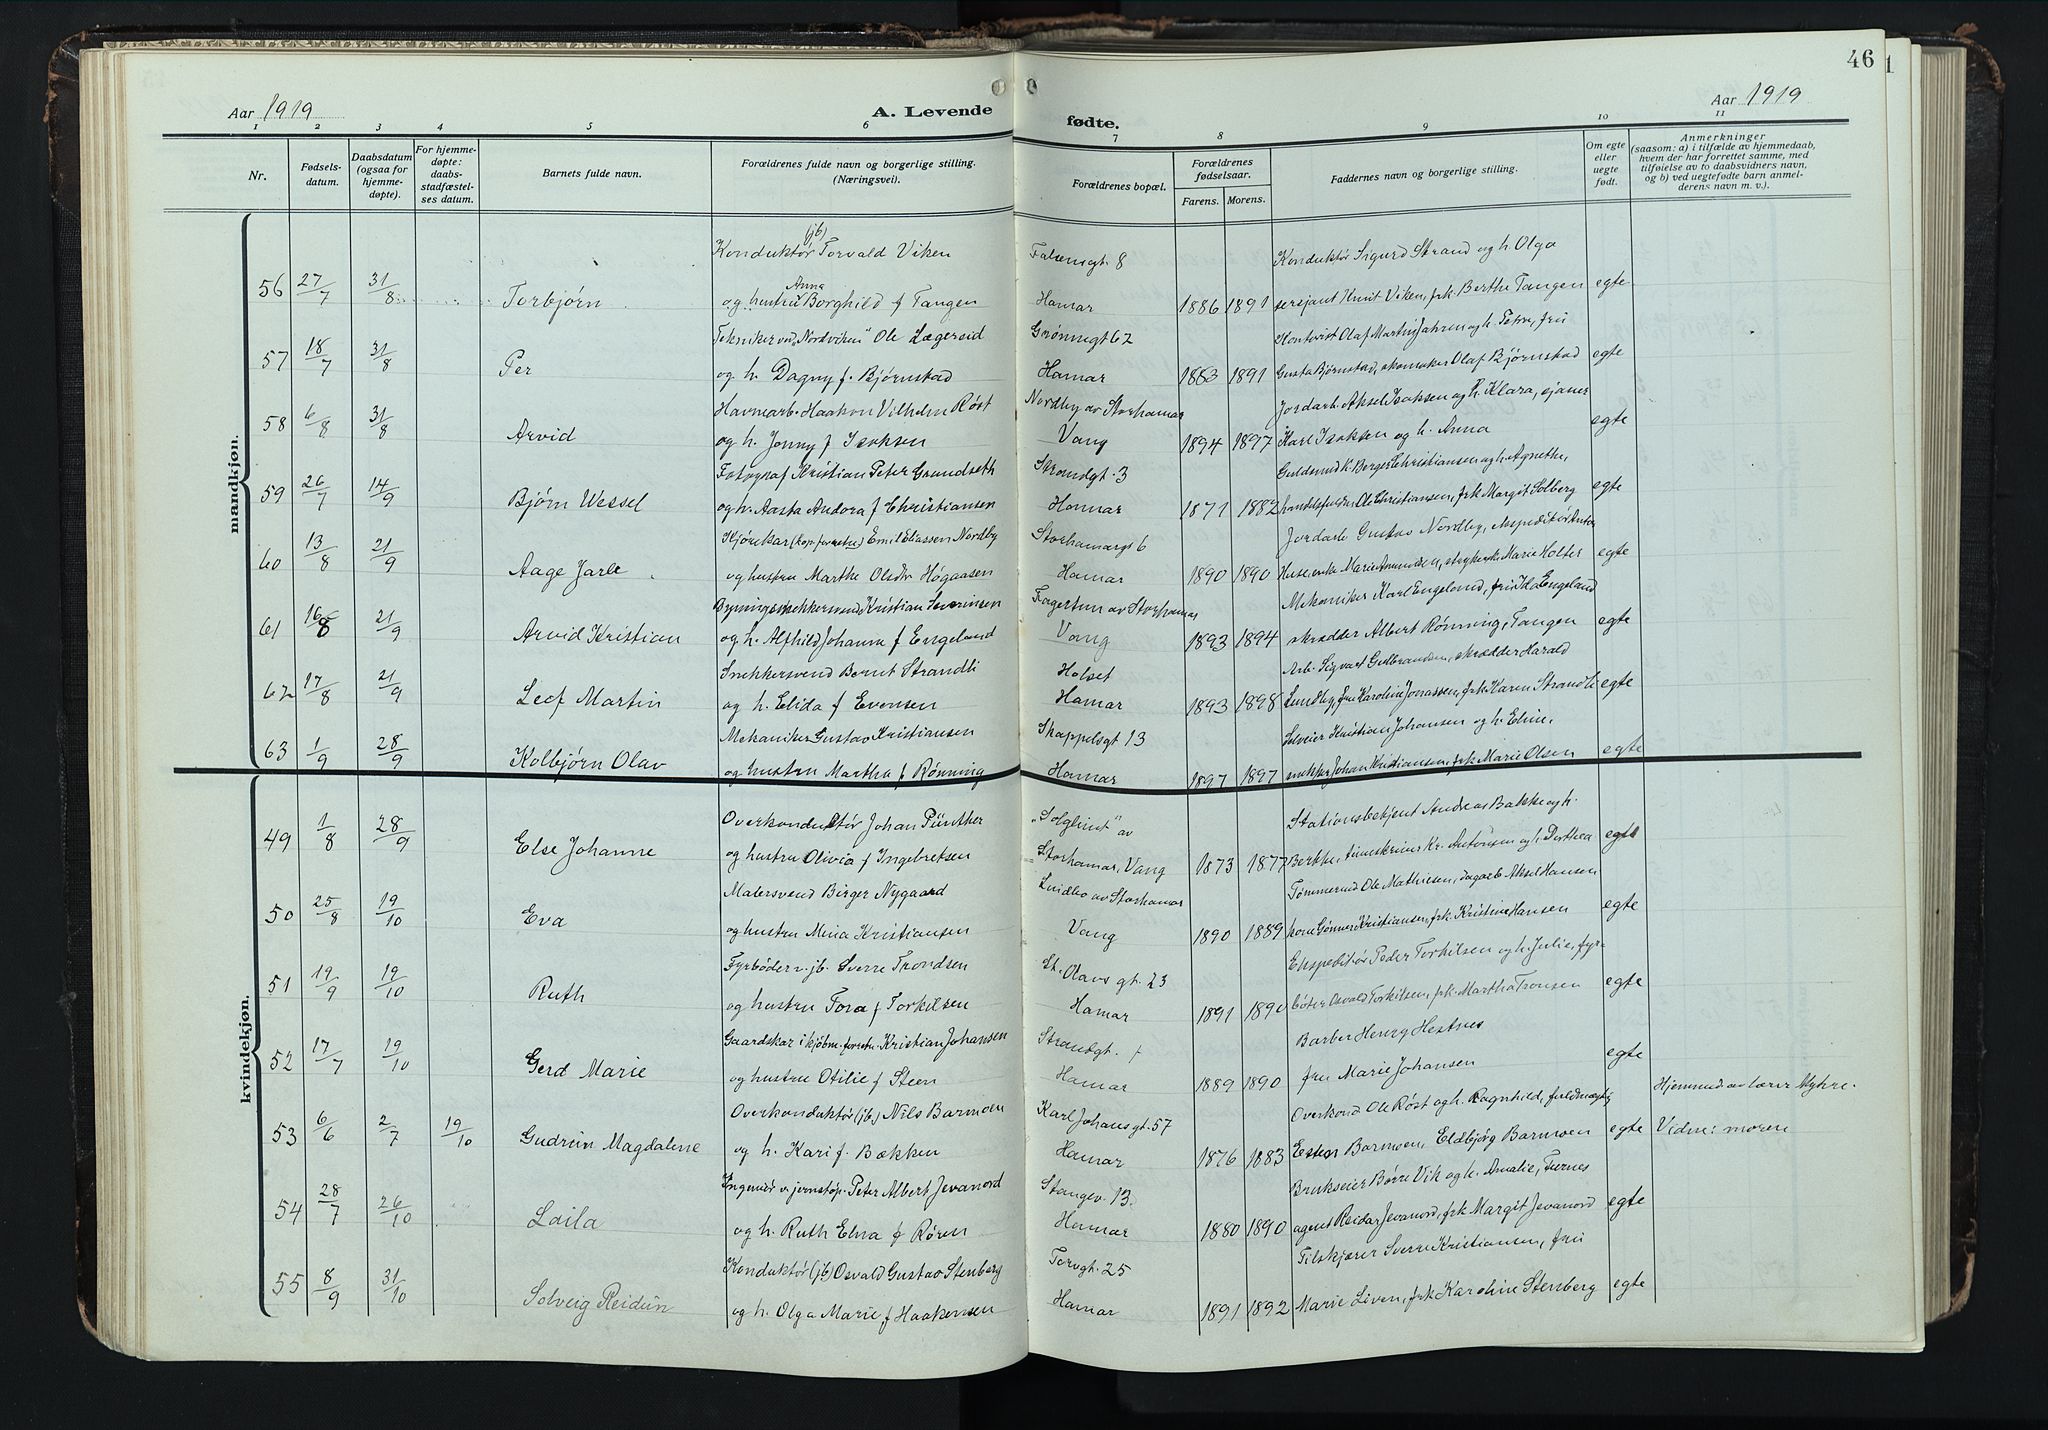 Aar 1919
A. Levende
fødte.
Aar 1919
46
1 2 3 4 5 6 7 8 9 10 11
Nr.
Fødsels-
datum.
Daabsdatum
(ogsaa for
hjemme-
døpte).
For hjemme-
døpte:
daabs-
stadfæstel-
ses datum.
Barnets fulde navn.
Forældrenes fulde navn og borgerlige stilling.
(Næringsvei).
Forældrenes bopæl.
Forældrenes
fødselsaar.
Farens. Morens.
Faddernes navn og borgerlige stilling.
Om egte
eller
uegte
født.
Anmerkninger
(saasom: a) i tilfælde av hjemmedaab,
hvem der har forrettet samme, med
tilføielse av to daabsvidners navn,
og b) ved uegtefødte barn anmel-
derens navn m. v.).
mandkjøn.
(jb)
Konduktør Torvald Viken Falsensgt. 8 Konduktør Sigurd Strand og h. Olga
Anna
56 27/7 31/8 Torbjørn og hustru Borghild f Tangen Hamar 1886 1891 sersjant Knut Viken, frk Berthe Tangen egte
Tekniker ved "Nordviken" Ole Lægreid Grønnegt 62 Kontorist Olaf Martin Jahren og h. Petra, fru
57 18/7 31/8 Per og h. Dagny f. Bjørnstad Hamar 1883 1891 Gusta Bjørnstad, skomaker Olaf Bjørnstad egte
Havnearb. Haakon Vilhelm Røst Nordby av Storhamar Jordarb. Aksel Isaksen og h. Klara, sjauer
58 6/8 31/8 Arvid og h. Jonny f Isaksen Vang 1894 1897 Karl Isaksen og h. Anna egte
Fotograf Kristian Peter Grundseth Strandgt. 3 Guldsmed K. Berger Christiansen og h. Agnethe,
59 26/7 14/9 Bjørn Wessel og h. Aasta Andora f Christiansen Hamar 1871 1882 Ole Christiansen, frk Margit Solberg egte
Kjørekar Emil Eliassen Nordby Storhamargt 6 Jordarb Gustav Nordby, ekspeditør
60 13/8 21/9 Aage Jarle og hustru Marthe Olsdtr Høgaasen Hamar 1890 1890 Marie Holter egte
Bygningssnekkersvend Kristian Severinsen Fagertun av Storhamar Mekaniker Karl Engelund, fru Ida Engeland
61 16/8 21/9 Arvid Kristian og h. Alfhild Johanna f Engeland Vang 1893 1894 skrædder Albert Rønning, Tangen egte
Snekkersvend Bernt Strandli Holset Arb. Sigvart Gulbrandsen, skrædder Harald
62 17/8 21/9 Leif Martin og h. Elida f Evensen Hamar 1893 1898 Lundby, fru Karoline Jonassen, frk Karen Strandli egte
Mekaniker Gustav Kristiansen Skappelsgt 13 Kristian Johansen og h. Eline,
63 1/9 28/9 Kolbjørn Olav og hustru Martha f Rønning Hamar 1897 1897 snekker Johan Kristiansen, frk Marie Olsen egte
kvindekjøn.
Overkonduktør Johan Pünther "Solglimt" av Stationsbetjent Andreas Bakke og h.
49 1/8 28/9 Else Johanne og hustru Olivia f Ingebretsen Storhamar, Vang 1873 1877 Berthe, Kr. Antonsen og h. Dorthea egte
Malersvend Birger Nygaard Lindbo av Storhamar Tømmermd Ole Mathiesen, dagarb Aksel Hansen
50 25/8 19/10 Eva og hustru Mina Kristiansen Vang 1890 1889 Kristiansen, frk. Kristine Hansen egte
Fyrbøder v. jb. Sverre Trondsen St. Olavs gt. 23 Ekspeditør Peder Torkilsen og h. Julie, fyr-
51 19/9 19/10 Ruth og hustru Tora f Torkilsen Hamar 1891 1890 bøter Osvald Torkilsen, frk. Martha Tronsen egte
Gaardskar i kjøbm. forretn. Kristian Johansen Strandgt. Barber Henry Hestnes
52 17/7 19/10 Gerd Marie og hustru Otilie f Steen Hamar 1889 1890 fru Marie Johansen egte
Overkonduktør (jb) Nils Barmoen Karl Johansgt. 57 Overkond Ole Røst og h. Ragnhild, fuldmægtig Hjemmed av lærer Myhre.
53 6/6 2/7 19/10 Gudrun Magdalene og h. Kari f. Bækken Hamar 1876 1883 Esten Barmoen, Eldbjørg Barmoen egte Vidne: moren
Ingeniør v jernstøp. Peter Albert Jevanord Stangev. 13. Brukseier Børre Vik og h. Amalie, Furnes
54 28/7 26/10 Laila og h. Ruth Elna f Røren Hamar 1880 1890 agent Reidar Jevanord, frk Margit Jevanord egte
Konduktør (jb) Osvald Gustav Stenberg Torvgt. 25 Tilskjærer Sverre Kristiansen, fru
55 8/9 31/10 Solveig Reidun og h. Olga Marie f Haakensen Hamar 1891 1892 Marie Liven, frk Karoline Stenberg egte